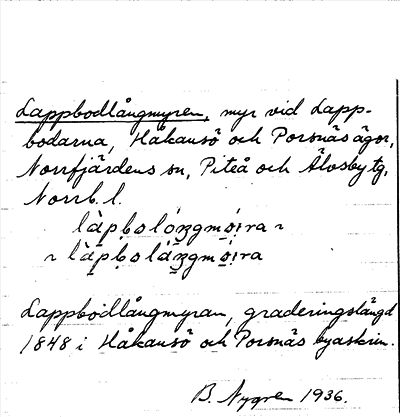 Lappbodlångmyren, myr vid Lapp-
bodarna, Håkansö och Porsnäs ägor,
Norrfjärdens sn, Piteå och Älvsby tg,
Norrb. l.
làpbolóngmo̱i̯ra ~
~ làpbolángmo̱i̯ra
Lappbodlångmyran, graderingslängd
1848 i Håkansö och Porsnäs byaskrin.
B. Nygren 1936.